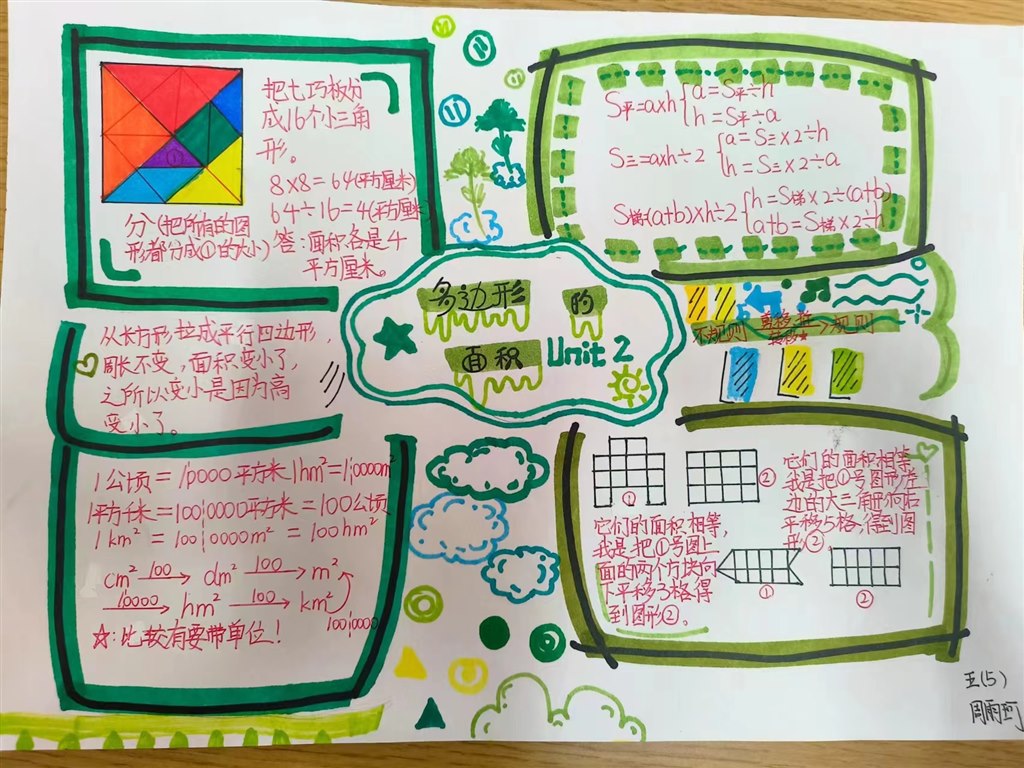 把七巧板分
成16个小三角
形。
8×8=64(平方厘米)
64÷16=4(平方厘米)
①
分(把所有的图
形都分成①的大小)
答:面积各是4
平方厘米。
S平=a×h
a=S平÷h
h=S平÷a
S三=a×h÷2
a=S三×2÷h
h=S三×2÷a
S梯(a+b)×h÷2
h=S梯×2÷(a+b)
a+b=S梯×2÷h
多边形的
面积 Unit 2
不规则
规则
从长方形拉成平行四边形,
周长不变,面积变小了,
之所以变小是因为高
变小了。
1公顷=10000平方米 1hm²=10000m²
1平方千米=1000000平方米=100公顷
1km²=1000000m²=100hm²
cm² 100 dm² 100 m²
10000 hm² 100 km²
1000000
☆:比较有要带单位!
①
②
它们的面积相等,
我是把①号图上
面的两个方块向
下平移3格得
到图形②。
它们的面积相等
我是把①号图形左
边的大三角形向右
平移5格,得到图
形②。
①
②
五(5)
周雨珂